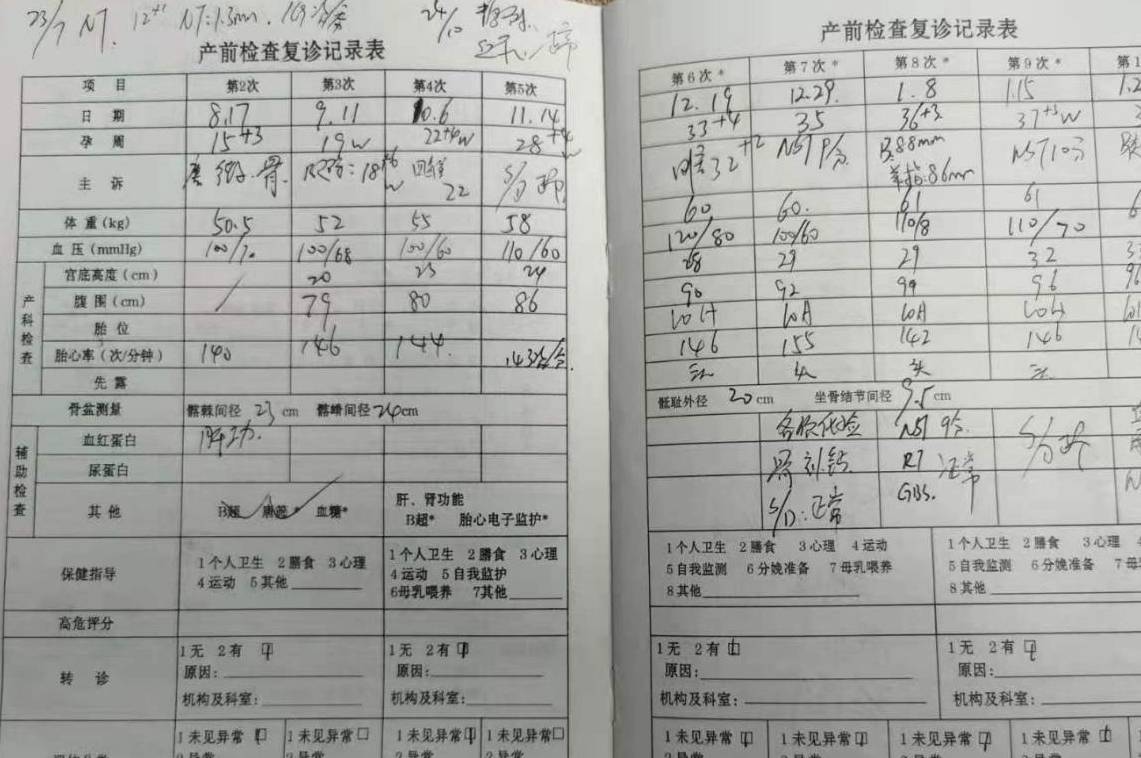 23/7 NT. 12+1 NT:1.3mm.
24/10
产前检查复诊记录表
项 目 第2次 第3次 第4次 第5次
日 期 8.17 9.11 10.6 11.14
孕 周 15+3 19w 22+4w 28+4w
主 诉 18+6w 22 S/D
体 重(kg) 50.5 52 55 58
血 压(mmHg) 100/70 100/68 100/60 110/60
产科检查
宫底高度(cm) 20 23 24
腹 围(cm) / 79 80 86
胎 位
胎心率(次/分钟) 140 146 144. 143次/分.
先 露
骨盆测量 髂棘间径 23 cm 髂嵴间径 26cm
辅助检查
血红蛋白
尿蛋白
其 他 B超 血糖* 肝、肾功能
B超* 胎心电子监护*
保健指导 1个人卫生 2膳食 3心理
4运动 5其他
1个人卫生 2膳食 3心理
4运动 5自我监护
6母乳喂养 7其他
高危评分
转 诊 1无 2有 1无 2有
原因: 原因:
机构及科室: 机构及科室:
1未见异常 1未见异常 1未见异常 1未见异常
产前检查复诊记录表
第6次* 第7次* 第8次* 第9次* 第1
12.19 12.29. 1.8 1.15 1.2
33+4 35 36+3 37+3w
32+2 NST 9分 B:88mm NST10分
86mm
60 60. 61 61
120/80 100/60 110/8 110/70
28 29 29 32
90 92 94 96
LOA LOA LOA LOA
146 155 142 146
头 头
骶耻外径 20cm 坐骨结节间径 9.5cm
NST 9分 S/D
正常
S/D:正常 GBS.
1个人卫生 2膳食 3心理 4运动
5自我监测 6分娩准备 7母乳喂养
8其他
1个人卫生 2膳食 3心理
5自我监测 6分娩准备 7母
8其他
1无 2有 1无 2有
原因: 原因:
机构及科室: 机构及科室:
1未见异常 1未见异常 1未见异常 1未见异常